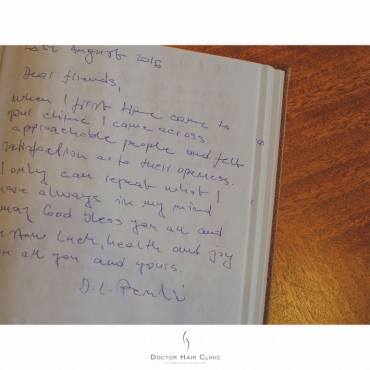 August 2016
Dear friends,
when I first time came to
your clinic I came across
approachable people and felt
satisfaction as to their openess.
I only can repeat what I
have always in my mind
may God bless you all and
luck, health and joy
on all you and yours.
DOCTOR HAIR CLINIC